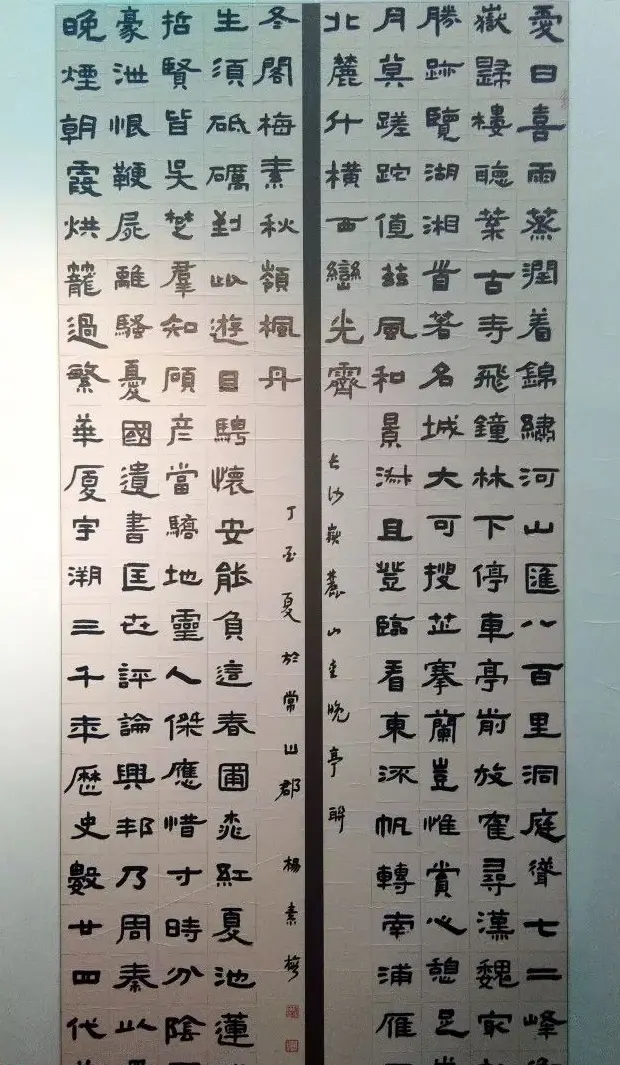 愛日喜雨蒸潤着錦繡河山匯八百里洞庭聳七二峰
嶽歸樓聽葉古寺飛鐘林下停車亭前放隺尋漢魏最
勝跡覽湖湘首著名城大可搜芷搴蘭豈惟賞心憩足
月莫蹉跎值茲風和景淑且登臨看東流帆轉南浦雁
北麓斗橫西巒光霽
长沙嶽麓山愛晚亭聯
晚煙朝霞烘籠過繁華廈宇溯三千年歷史數廿四代
豪泄恨鞭屍離騷憂國遺書匡世評論興邦乃周秦以
哲賢皆吳楚羣知顧彥當驕地靈人傑應惜寸時分陰
生須砥礪對此遊目騁懷安能負這春圃桃紅夏池蓮
冬閣梅素秋嶺楓丹
丁酉夏於常山郡 楊素梅